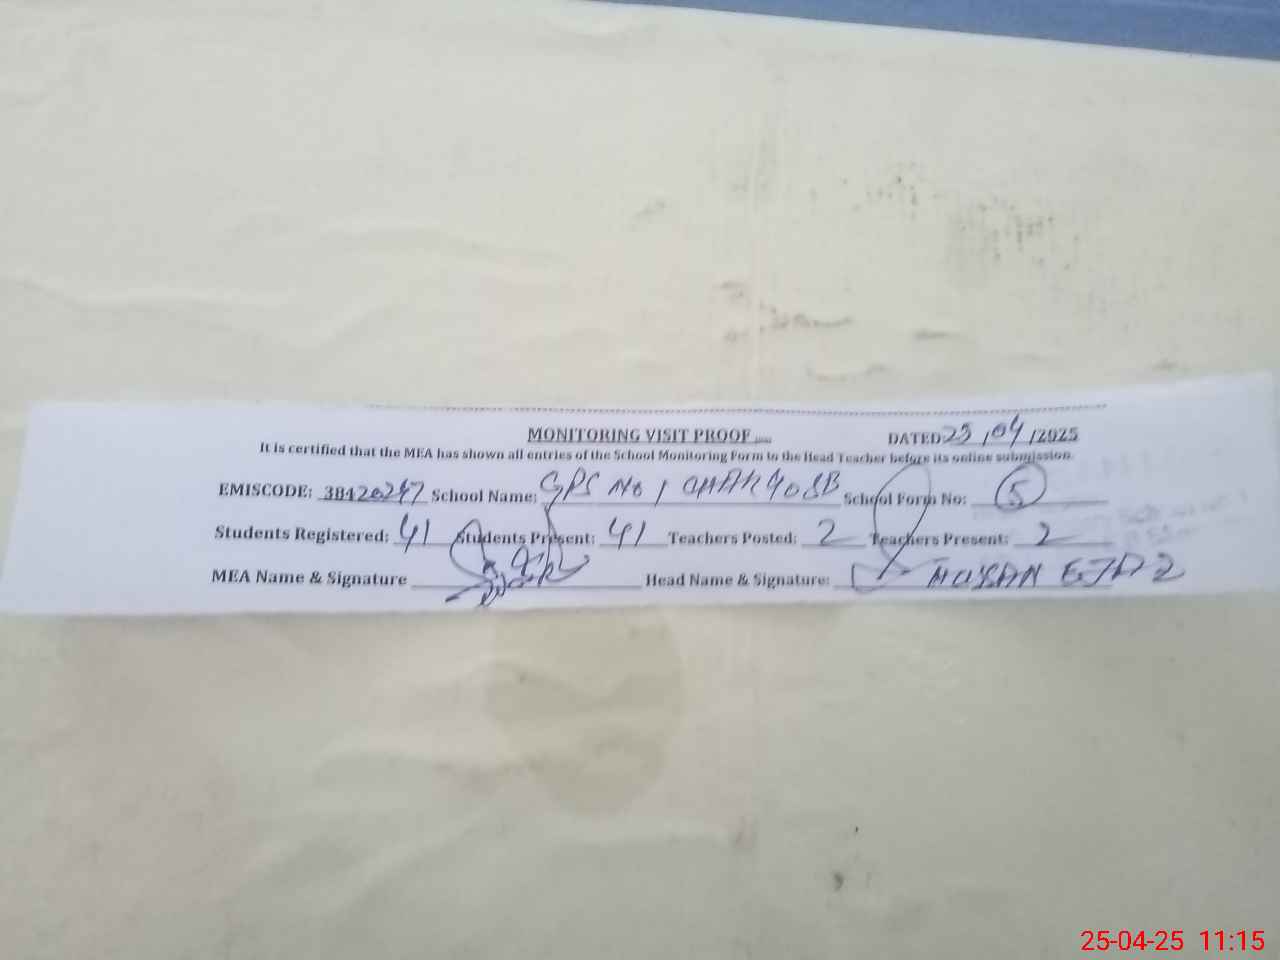 MONITORING VISIT PROOF DATED 25/04/2025
It is certified that the MEA has shown all entries of the School Monitoring Form to the Head Teacher before its online submission.
EMISCODE: 38420247 School Name: GPS No 1 CHAK 40SB School Form No: 5
Students Registered: 41 Students Present: 41 Teachers Posted: 2 Teachers Present: 2
MEA Name & Signature Head Name & Signature:
25-04-25 11:15